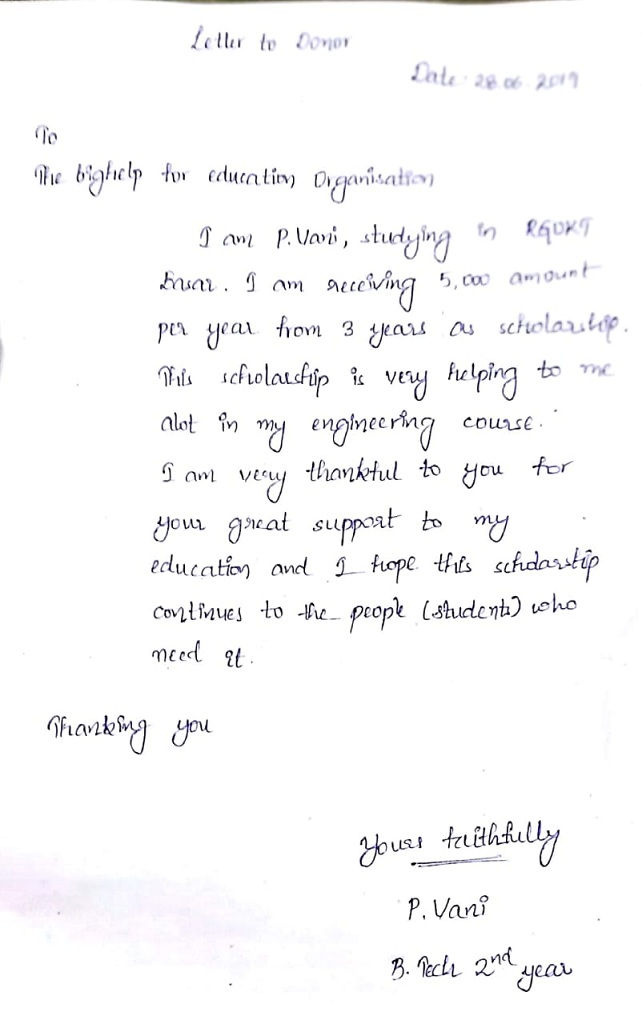 Letter to Donor
Date: 28.06.2019
To
The bighelp for education Organisation
I am P. Vani, studying in RGUKT
Basar. I am receiving 5,000 amount
per year from 3 years as scholarship.
This scholarship is very helping to me
alot in my engineering course.
I am very thankful to you for
your great support to my
education and I hope this scholarship
continues to the people (students) who
need it.
Thanking you
Yours faithfully
P. Vani
B. Tech 2nd year